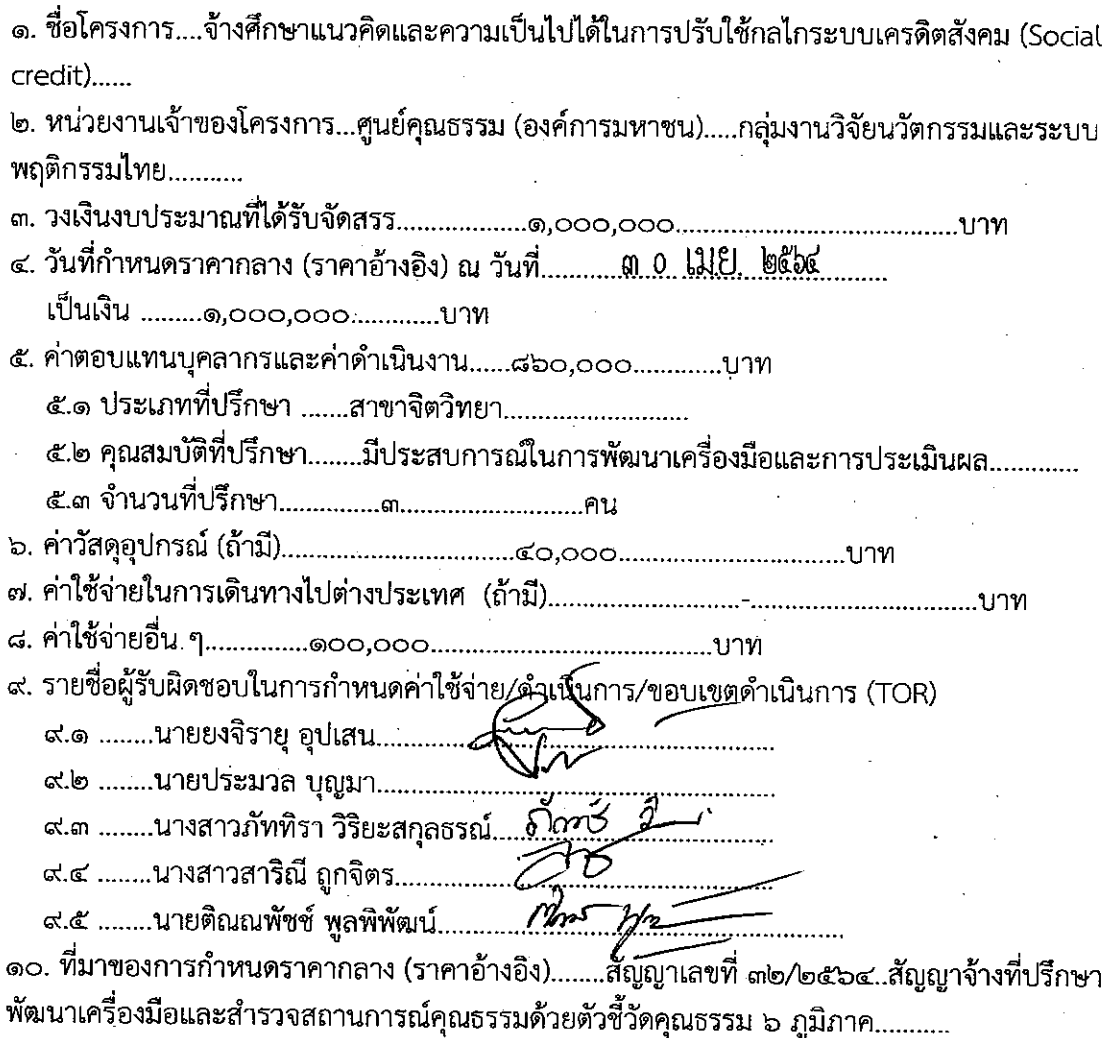 ๑. ชื่อโครงการ....จ้างศึกษาแนวคิดและความเป็นไปได้ในการปรับใช้กลไกระบบเครดิตสังคม (Social
credit)......
๒. หน่วยงานเจ้าของโครงการ...ศูนย์คุณธรรม (องค์การมหาชน).....กลุ่มงานวิจัยนวัตกรรมและระบบ
พฤติกรรมไทย...........
๓. วงเงินงบประมาณที่ได้รับจัดสรร...................๑,๐๐๐,๐๐๐.........................................บาท
๔. วันที่กำหนดราคากลาง (ราคาอ้างอิง) ณ วันที่...........๓ ๐ เม.ย. ๒๕๖๔.........
เป็นเงิน .........๑,๐๐๐,๐๐๐.............บาท
๕. ค่าตอบแทนบุคลากรและค่าดำเนินงาน......๘๖๐,๐๐๐.............บาท
๕.๑ ประเภทที่ปรึกษา .......สาขาจิตวิทยา..........................
๕.๒ คุณสมบัติที่ปรึกษา........มีประสบการณ์ในการพัฒนาเครื่องมือและการประเมินผล.............
๕.๓ จำนวนที่ปรึกษา...............๓..........................คน
๖. ค่าวัสดุอุปกรณ์ (ถ้ามี)..................................๔๐,๐๐๐.................................บาท
๗. ค่าใช้จ่ายในการเดินทางไปต่างประเทศ (ถ้ามี)............................-..................................บาท
๘. ค่าใช้จ่ายอื่น ๆ................๑๐๐,๐๐๐.........................................บาท
๙. รายชื่อผู้รับผิดชอบในการกำหนดค่าใช้จ่าย/ดำเนินการ/ขอบเขตดำเนินการ (TOR)
๙.๑ ........นายยงจิรายุ อุปเสน...........
๙.๒ ........นายประมวล บุญมา...........
๙.๓ ........นางสาวภัททิรา วิริยะสกุลธรณ์....
๙.๔ ........นางสาวสาริณี ถูกจิตร...........
๙.๕ ........นายติณณพัชช์ พูลพิพัฒน์...........
๑๐. ที่มาของการกำหนดราคากลาง (ราคาอ้างอิง)........สัญญาเลขที่ ๓๒/๒๕๖๔..สัญญาจ้างที่ปรึกษา
พัฒนาเครื่องมือและสำรวจสถานการณ์คุณธรรมด้วยตัวชี้วัดคุณธรรม ๖ ภูมิภาค...........